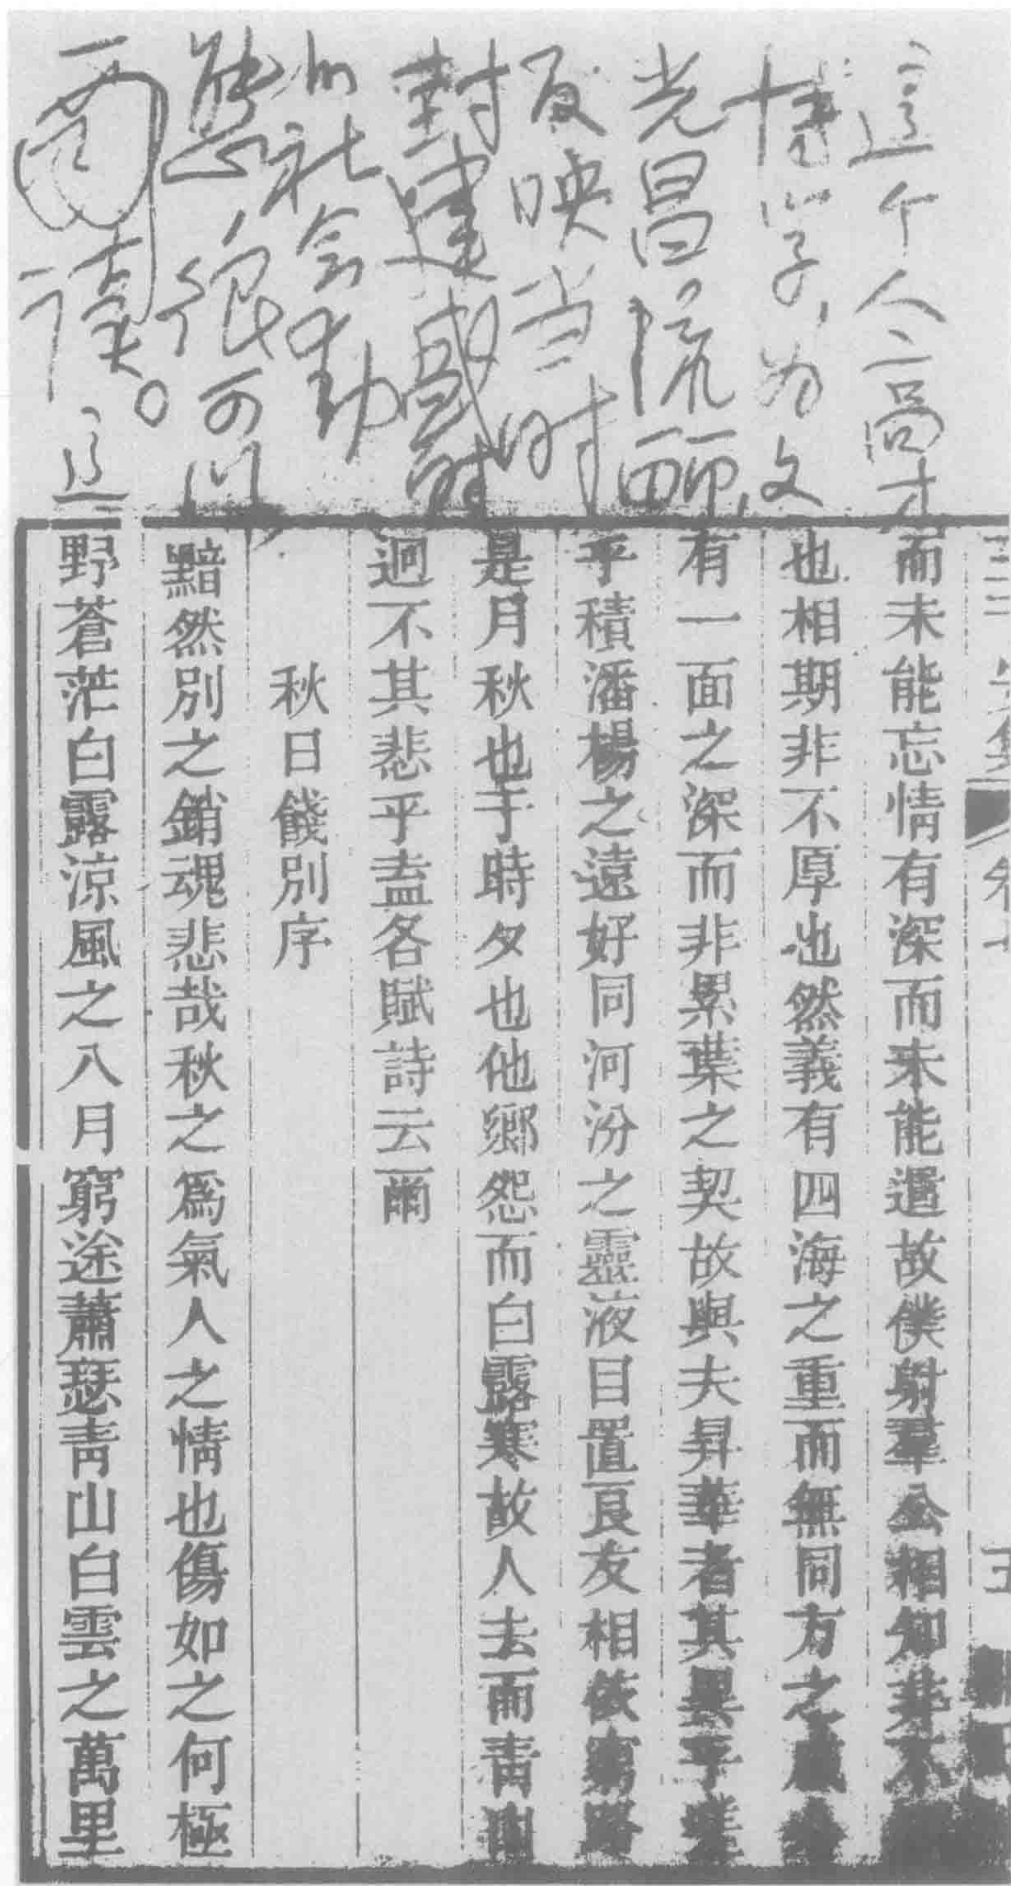 这个人高才
博学，为文
光昌流丽，
反映当时
封建盛时
的社会动
态，很可以
一读。这
而未能忘情有深而未能遣故僕射羣公相知非不
也相期非不厚也然義有四海之重而無同方之
有一面之深而非累葉之契故與夫昇華者其異乎嗟
乎積潘楊之遠好同河汾之靈液目置良友相依窮路
是月秋也于時夕也他鄉怨而白露寒故人去而青山
迥不其悲乎盍各賦詩云爾
秋日餞別序
黯然別之銷魂悲哉秋之爲氣人之情也傷如之何極
野蒼茫白露涼風之八月窮途蕭瑟青山白雲之萬里